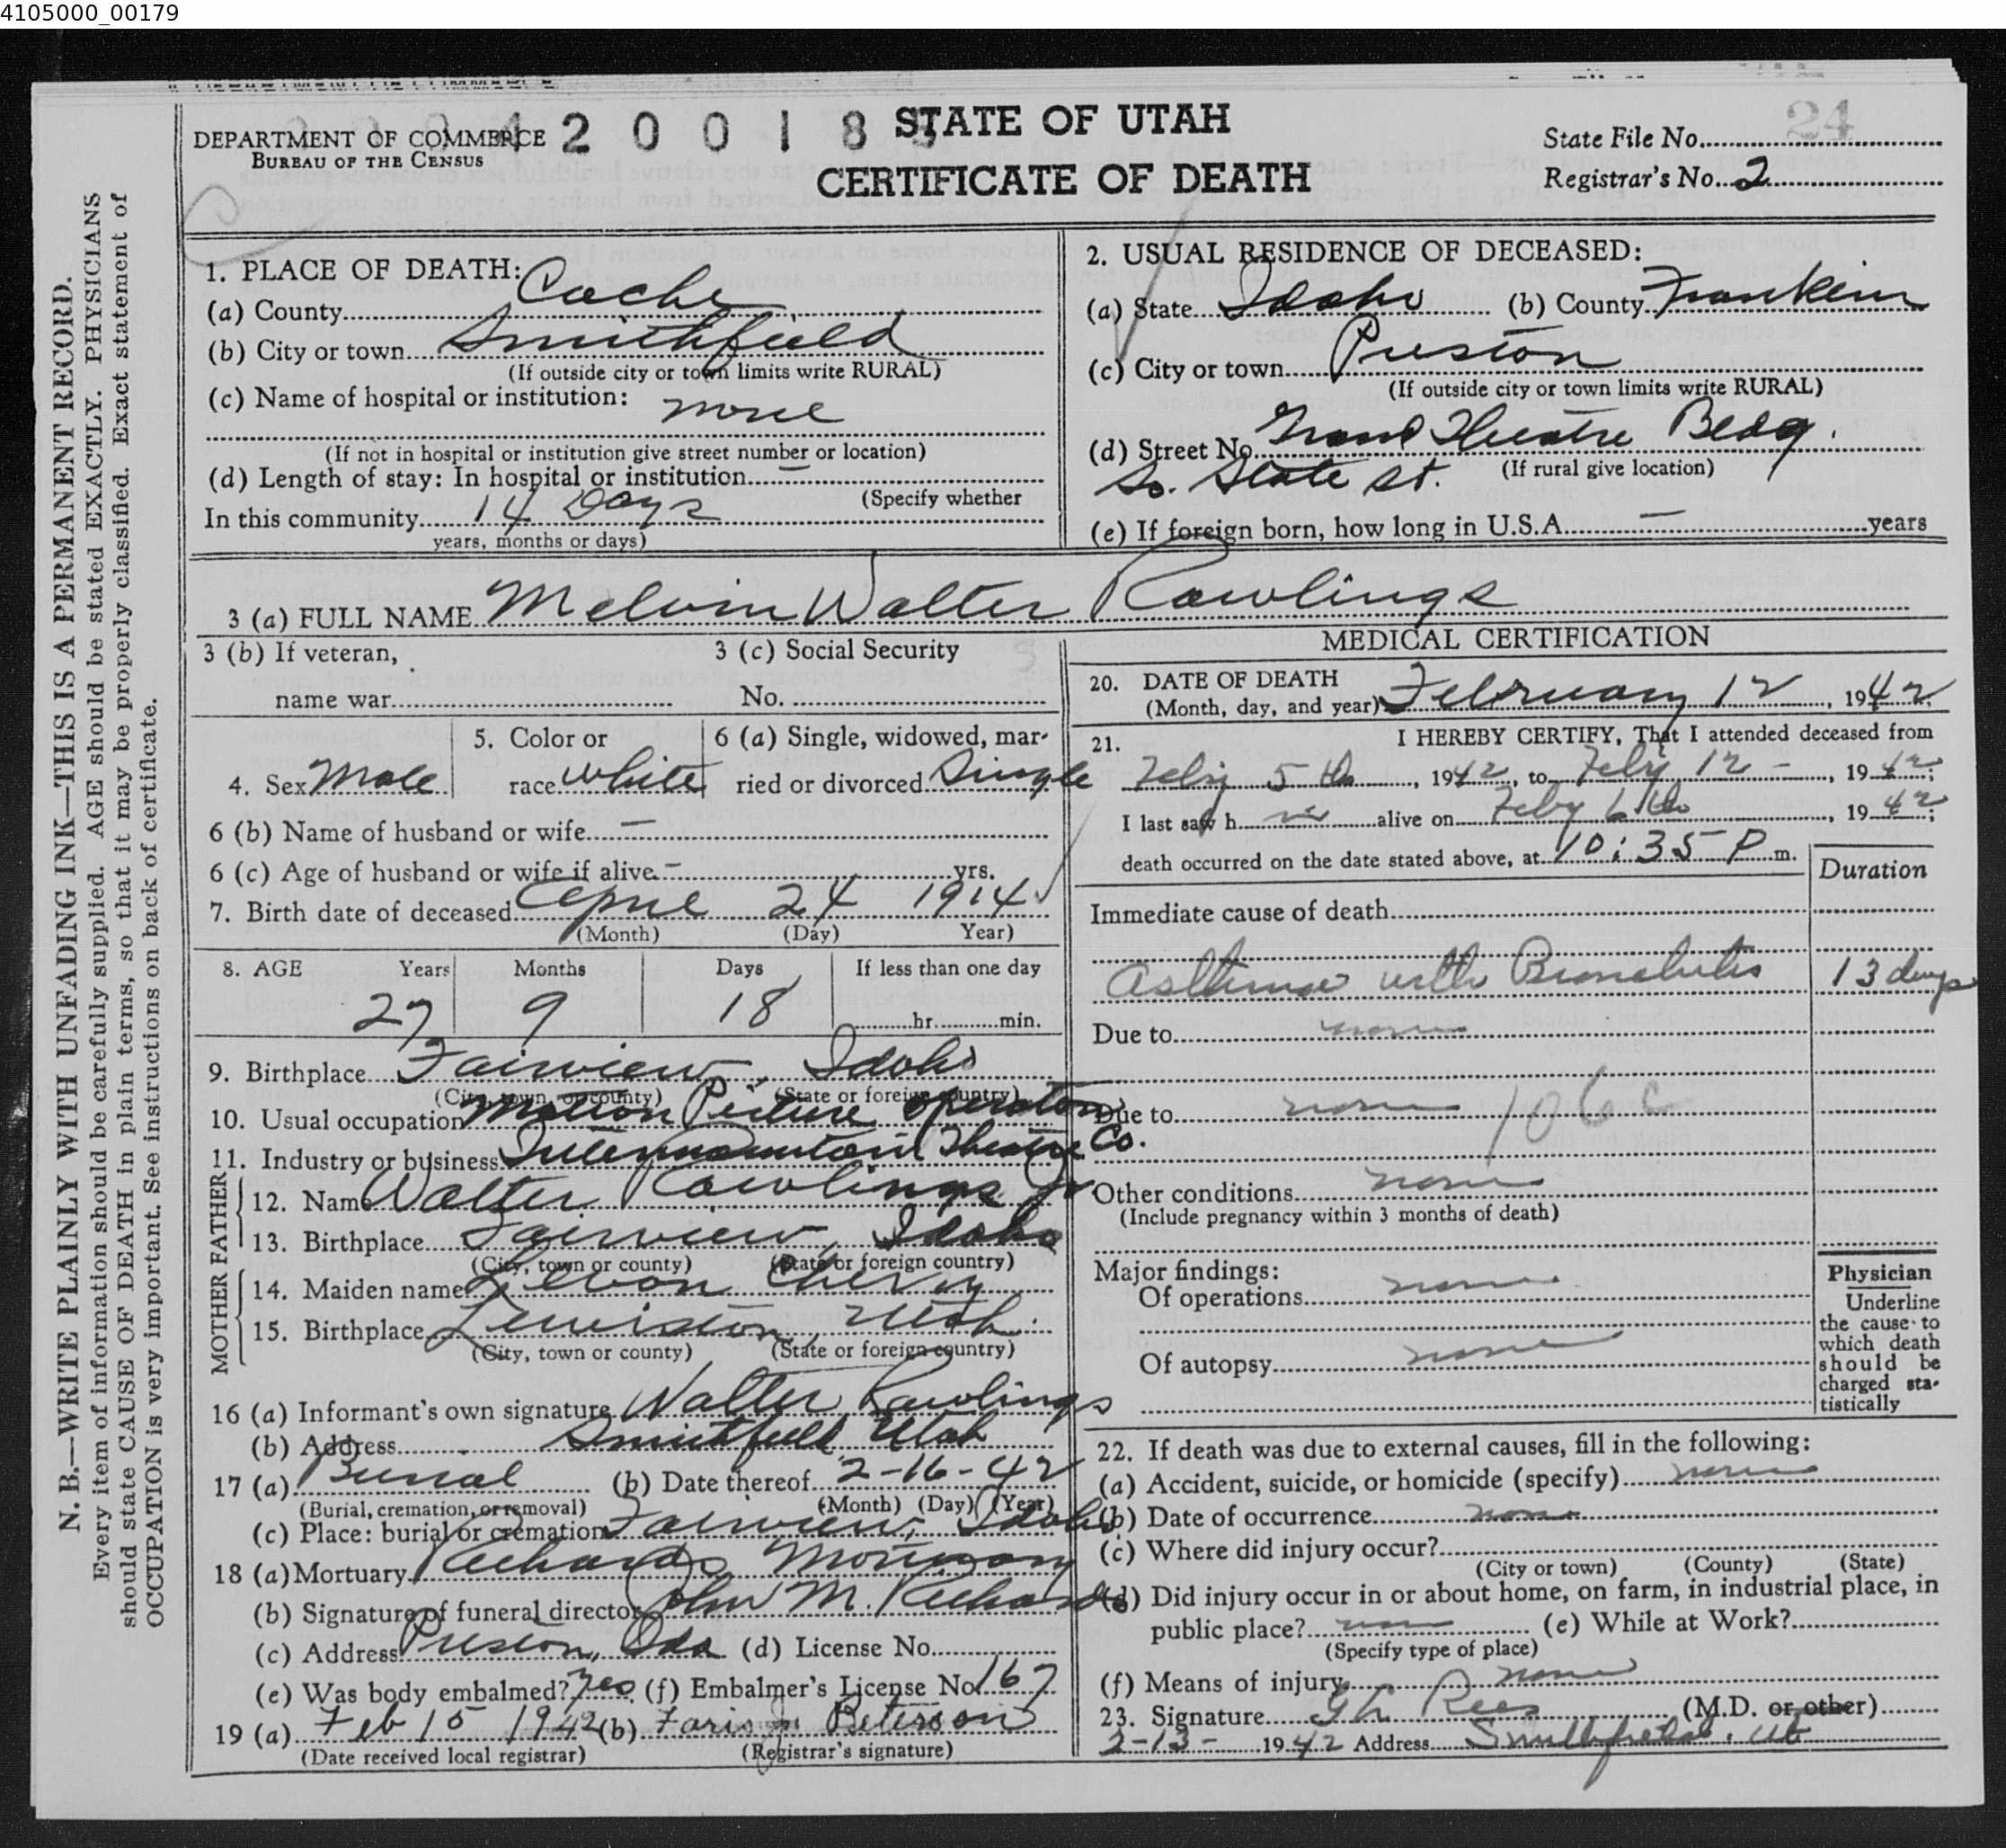 4105000_00179
DEPARTMENT OF COMMERCE
BUREAU OF THE CENSUS
4200185
STATE OF UTAH
CERTIFICATE OF DEATH
State File No. 24
Registrar's No. 2
N. B.—WRITE PLAINLY WITH UNFADING INK—THIS IS A PERMANENT RECORD.
Every item of information should be carefully supplied. AGE should be stated EXACTLY. PHYSICIANS
should state CAUSE OF DEATH in plain terms, so that it may be properly classified. Exact statement of
OCCUPATION is very important. See instructions on back of certificate.
1. PLACE OF DEATH:
(a) County Cache
(b) City or town Smithfield
(If outside city or town limits write RURAL)
(c) Name of hospital or institution: none
(If not in hospital or institution give street number or location)
(d) Length of stay: In hospital or institution —
(Specify whether
In this community 14 Days
years, months or days)
2. USUAL RESIDENCE OF DECEASED:
(a) State Idaho (b) County Franklin
(c) City or town Preston
(If outside city or town limits write RURAL)
(d) Street No. Grand Theatre Bldg.
So. State St. (If rural give location)
(e) If foreign born, how long in U.S.A. — years
3 (a) FULL NAME Melvin Walter Rawlings
3 (b) If veteran,
name war
3 (c) Social Security
No.
4. Sex Male
5. Color or
race White
6 (a) Single, widowed, mar-
ried or divorced Single
6 (b) Name of husband or wife —
6 (c) Age of husband or wife if alive - yrs.
7. Birth date of deceased April 24 1914
(Month) (Day) Year)
8. AGE Years Months Days If less than one day
27 9 18 hr. min.
9. Birthplace Fairview, Idaho
(City, town, or county) (State or foreign country)
10. Usual occupation Motion Picture Operator
11. Industry or business Intermountain Theatre Co.
FATHER
12. Name Walter Rawlings Jr
13. Birthplace Fairview, Idaho
(City, town or county) (State or foreign country)
MOTHER
14. Maiden name Levon
15. Birthplace Lewiston, Utah
(City, town or county) (State or foreign country)
16 (a) Informant's own signature Walter Rawlings
(b) Address Smithfield Utah
17 (a) Burial (b) Date thereof 2-16-42
(Burial, cremation, or removal) (Month) (Day) (Year)
(c) Place: burial or cremation Fairview, Idaho
18 (a) Mortuary Richards Mortuary
(b) Signature of funeral director John M. Richards
(c) Address Preston, Ida (d) License No.
(e) Was body embalmed? Yes (f) Embalmer's License No. 167
19 (a) Feb 15 1942 (b) Faris J Peterson
(Date received local registrar) (Registrar's signature)
MEDICAL CERTIFICATION
20. DATE OF DEATH
(Month, day, and year) February 12, 1942
21. I HEREBY CERTIFY, That I attended deceased from
Feby 5th, 1942, to Feby 12 -, 1942;
I last saw h alive on Feby 6th, 1942;
death occurred on the date stated above, at 10:35 P m.
Duration
Immediate cause of death
Asthma with Bronchitis 13 days
Due to none
Due to none 106c
Other conditions none
(Include pregnancy within 3 months of death)
Major findings:
Of operations none
Of autopsy none
Physician
Underline
the cause to
which death
should be
charged sta-
tistically
22. If death was due to external causes, fill in the following:
(a) Accident, suicide, or homicide (specify) none
(b) Date of occurrence none
(c) Where did injury occur?
(City or town) (County) (State)
(d) Did injury occur in or about home, on farm, in industrial place, in
public place? none (e) While at Work?
(Specify type of place)
(f) Means of injury none
23. Signature G L Rees (M.D. or other)
2-13- 1942 Address Smithfield, Ut